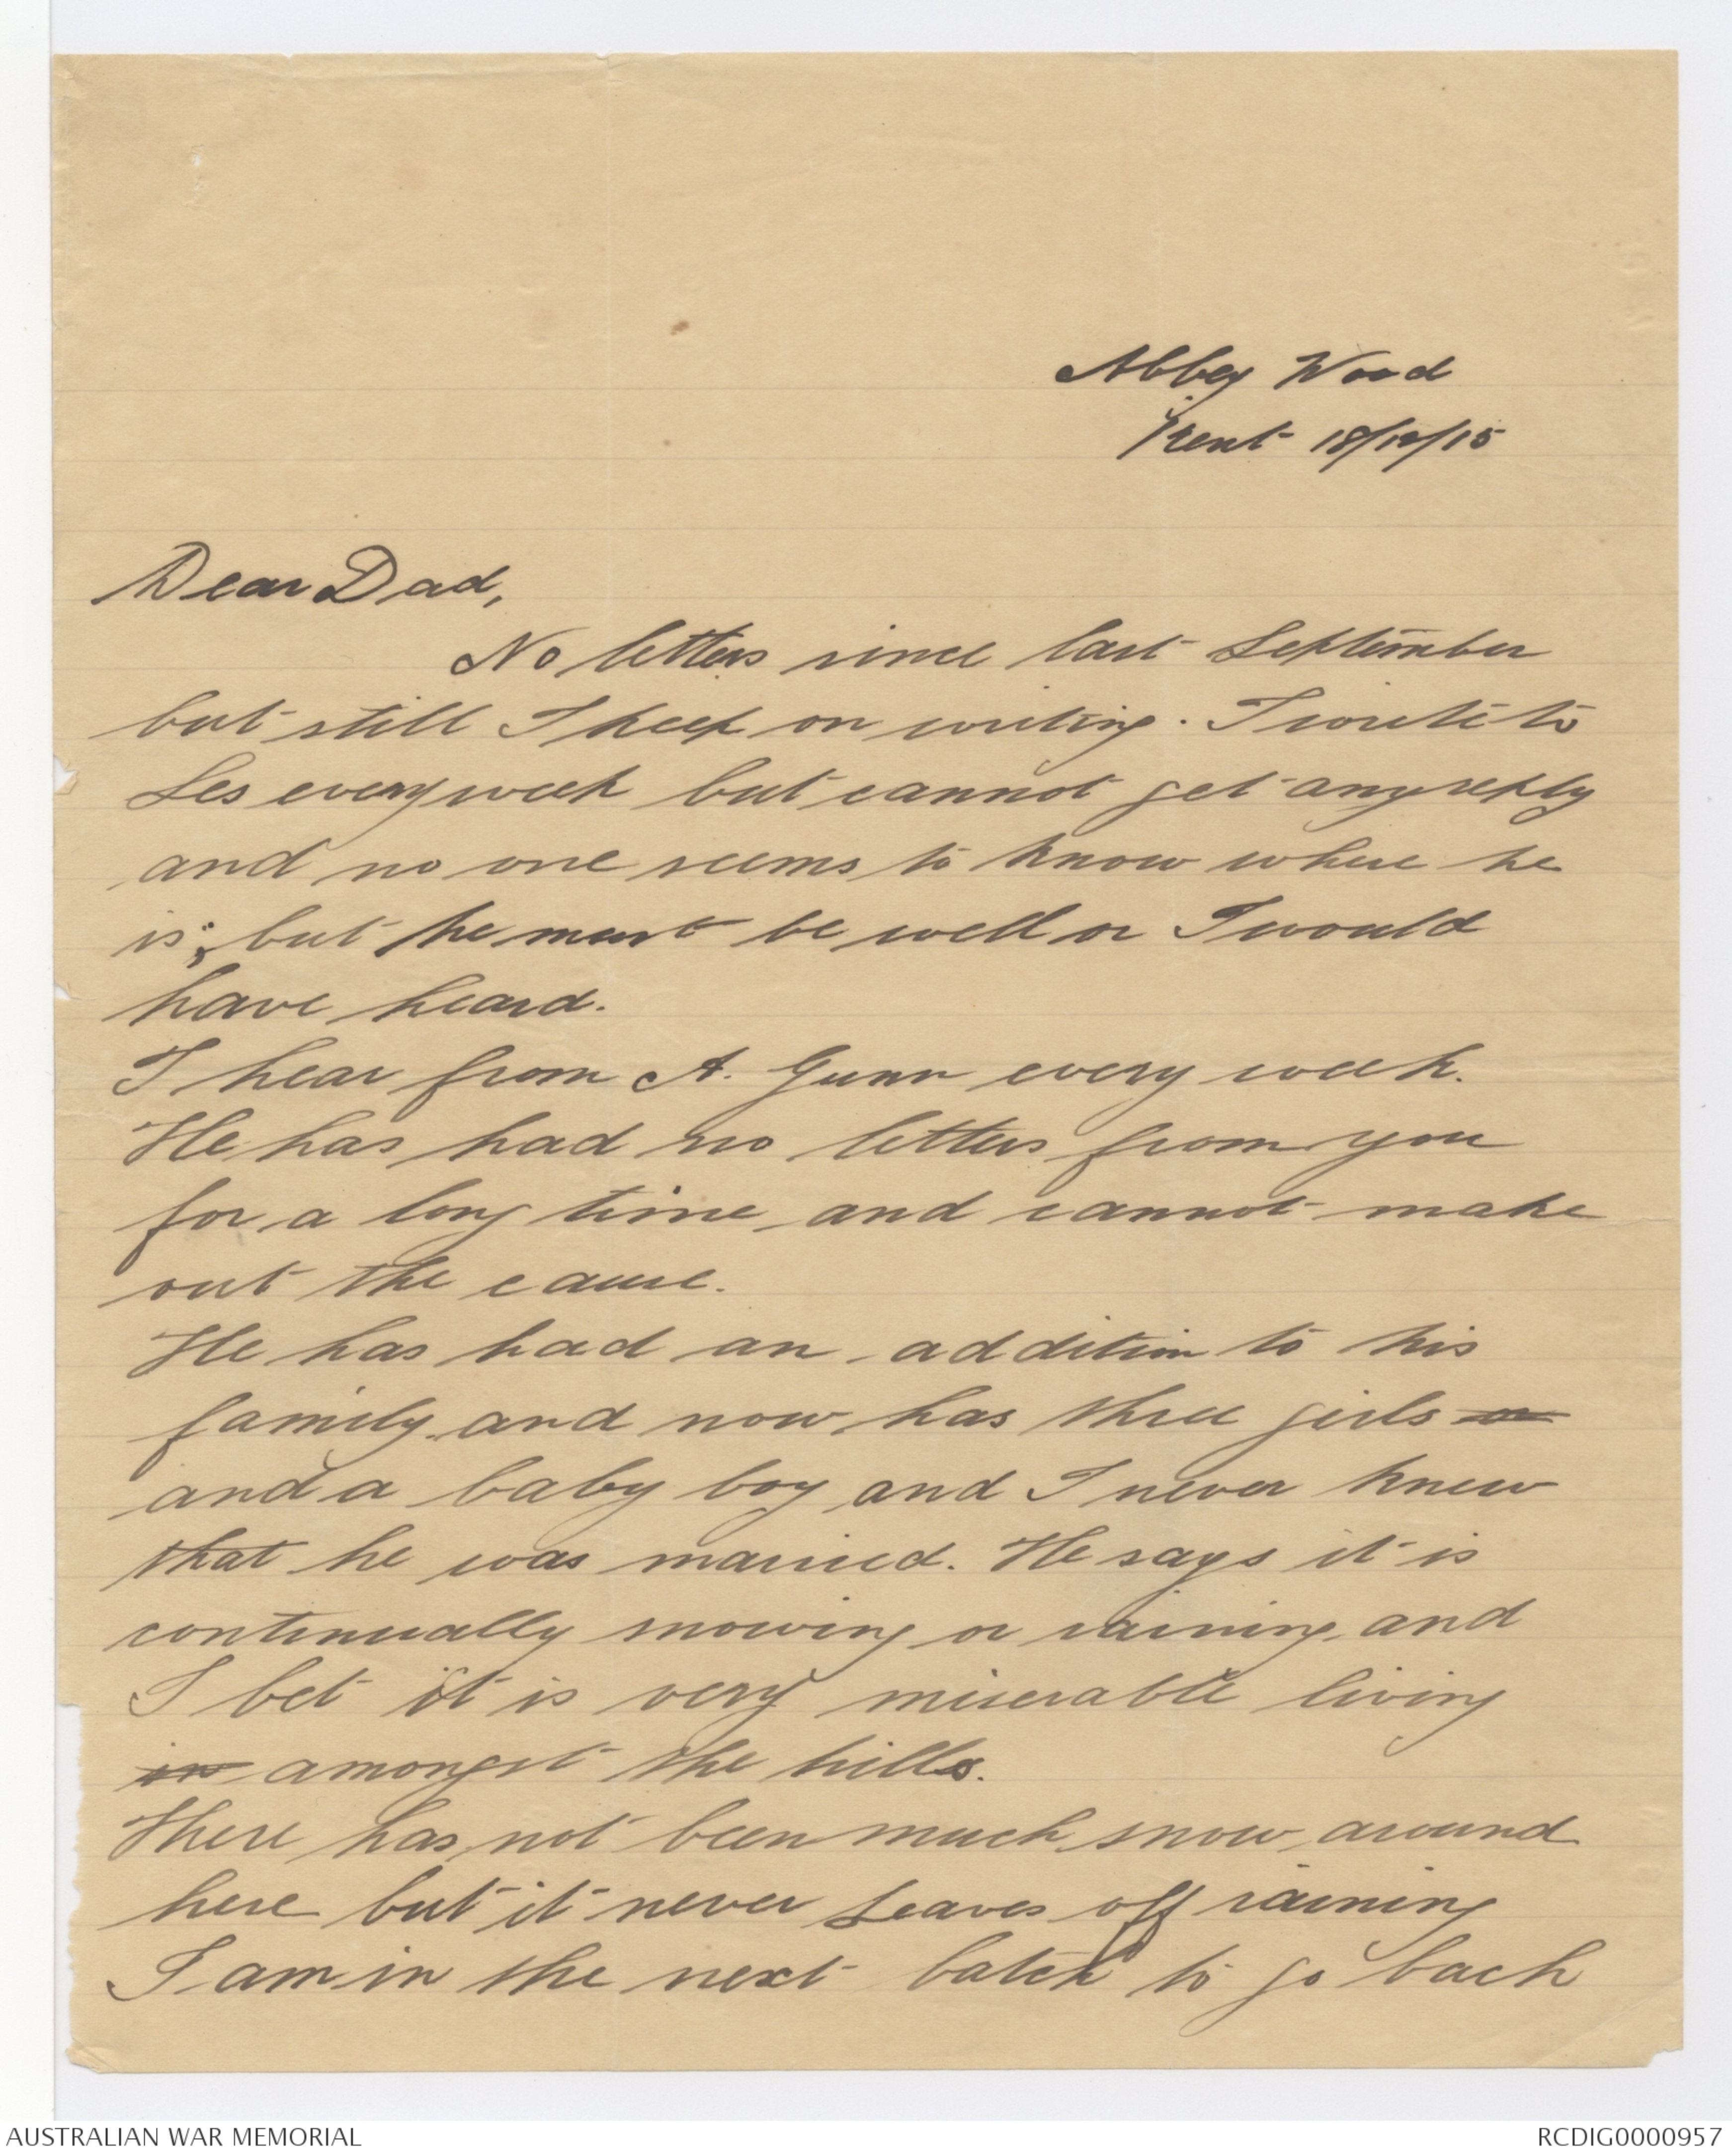 Abbey Wood
Kent 18/12/15
Dear Dad,
No letters since last September
but still I keep on writing. I write to
Les every week but cannot get any reply
and no one seems to know where he
is; but he must be well or I would
have heard.
I hear from A. Gunn every week.
He has had no letters from you
for a long time and cannot make
out the cause.
He has had an addition to his
family and now has three girls a
and a baby boy and I never knew
that he was married. He says it is
continually snowing or raining and
I bet it is very miserable living
in amongst the hills.
There has not been much snow around
here but it never leaves off raining
I am in the next batch to go back
AUSTRALIAN WAR MEMORIAL
RCDIG0000957